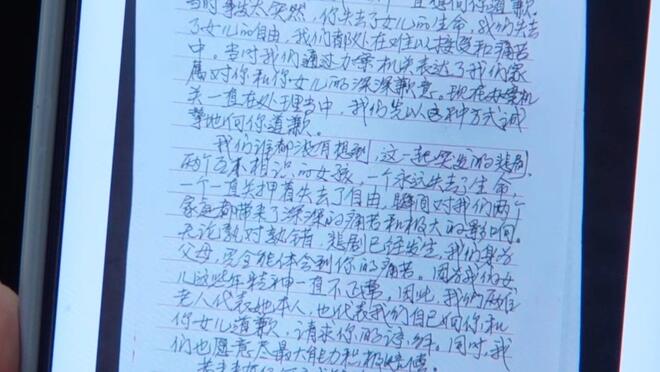 一直想向你道歉
当时事发太突然，你失去了女儿的生命，我们失去
了女儿的自由，我们都处在难以接受和痛苦
中。当时我们通过办案机关表达了我们家
属对你和你女儿的深深歉意。现在办案机
关一直在处理当中，我们先以这种方式诚
挚地向你道歉。
我们谁都没有想到，这一起突发的悲剧，
两个互不相识的女孩，一个永远失去了生命，
一个一直关押着失去了自由，瞬间对我们两个
家庭都带来了深深的痛苦和极大的影响。
无论孰对孰错，悲剧已经发生，我们身为
父母，完全能体会到你的痛苦。因为我们女
儿这些年精神一直不正常，因此，我们两位
老人代表她本人，也代表我们自己向你和
你女儿道歉，请求你的谅解。同时，我
们也愿意尽最大能力积极赔偿。